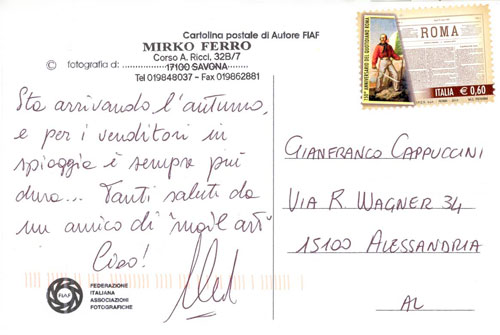 Cartolina postale di Autore FIAF
MIRKO FERRO
Corso A. Ricci, 32B/7
© fotografia di: 17100 SAVONA
Tel 019848037 – Fax 019862881
Sta arrivando l'autunno,
e per i venditori in
spiaggia è sempre più
dura... Tanti saluti da
un amico di "mail art"
Ciao!
FIAF
FEDERAZIONE
ITALIANA
ASSOCIAZIONI
FOTOGRAFICHE
110° ANNIVERSARIO DEL QUOTIDIANO ROMA
ROMA
ITALIA € 0,60
GIANFRANCO CAPPUCCINI
VIA R. WAGNER 34
15100 ALESSANDRIA
AL